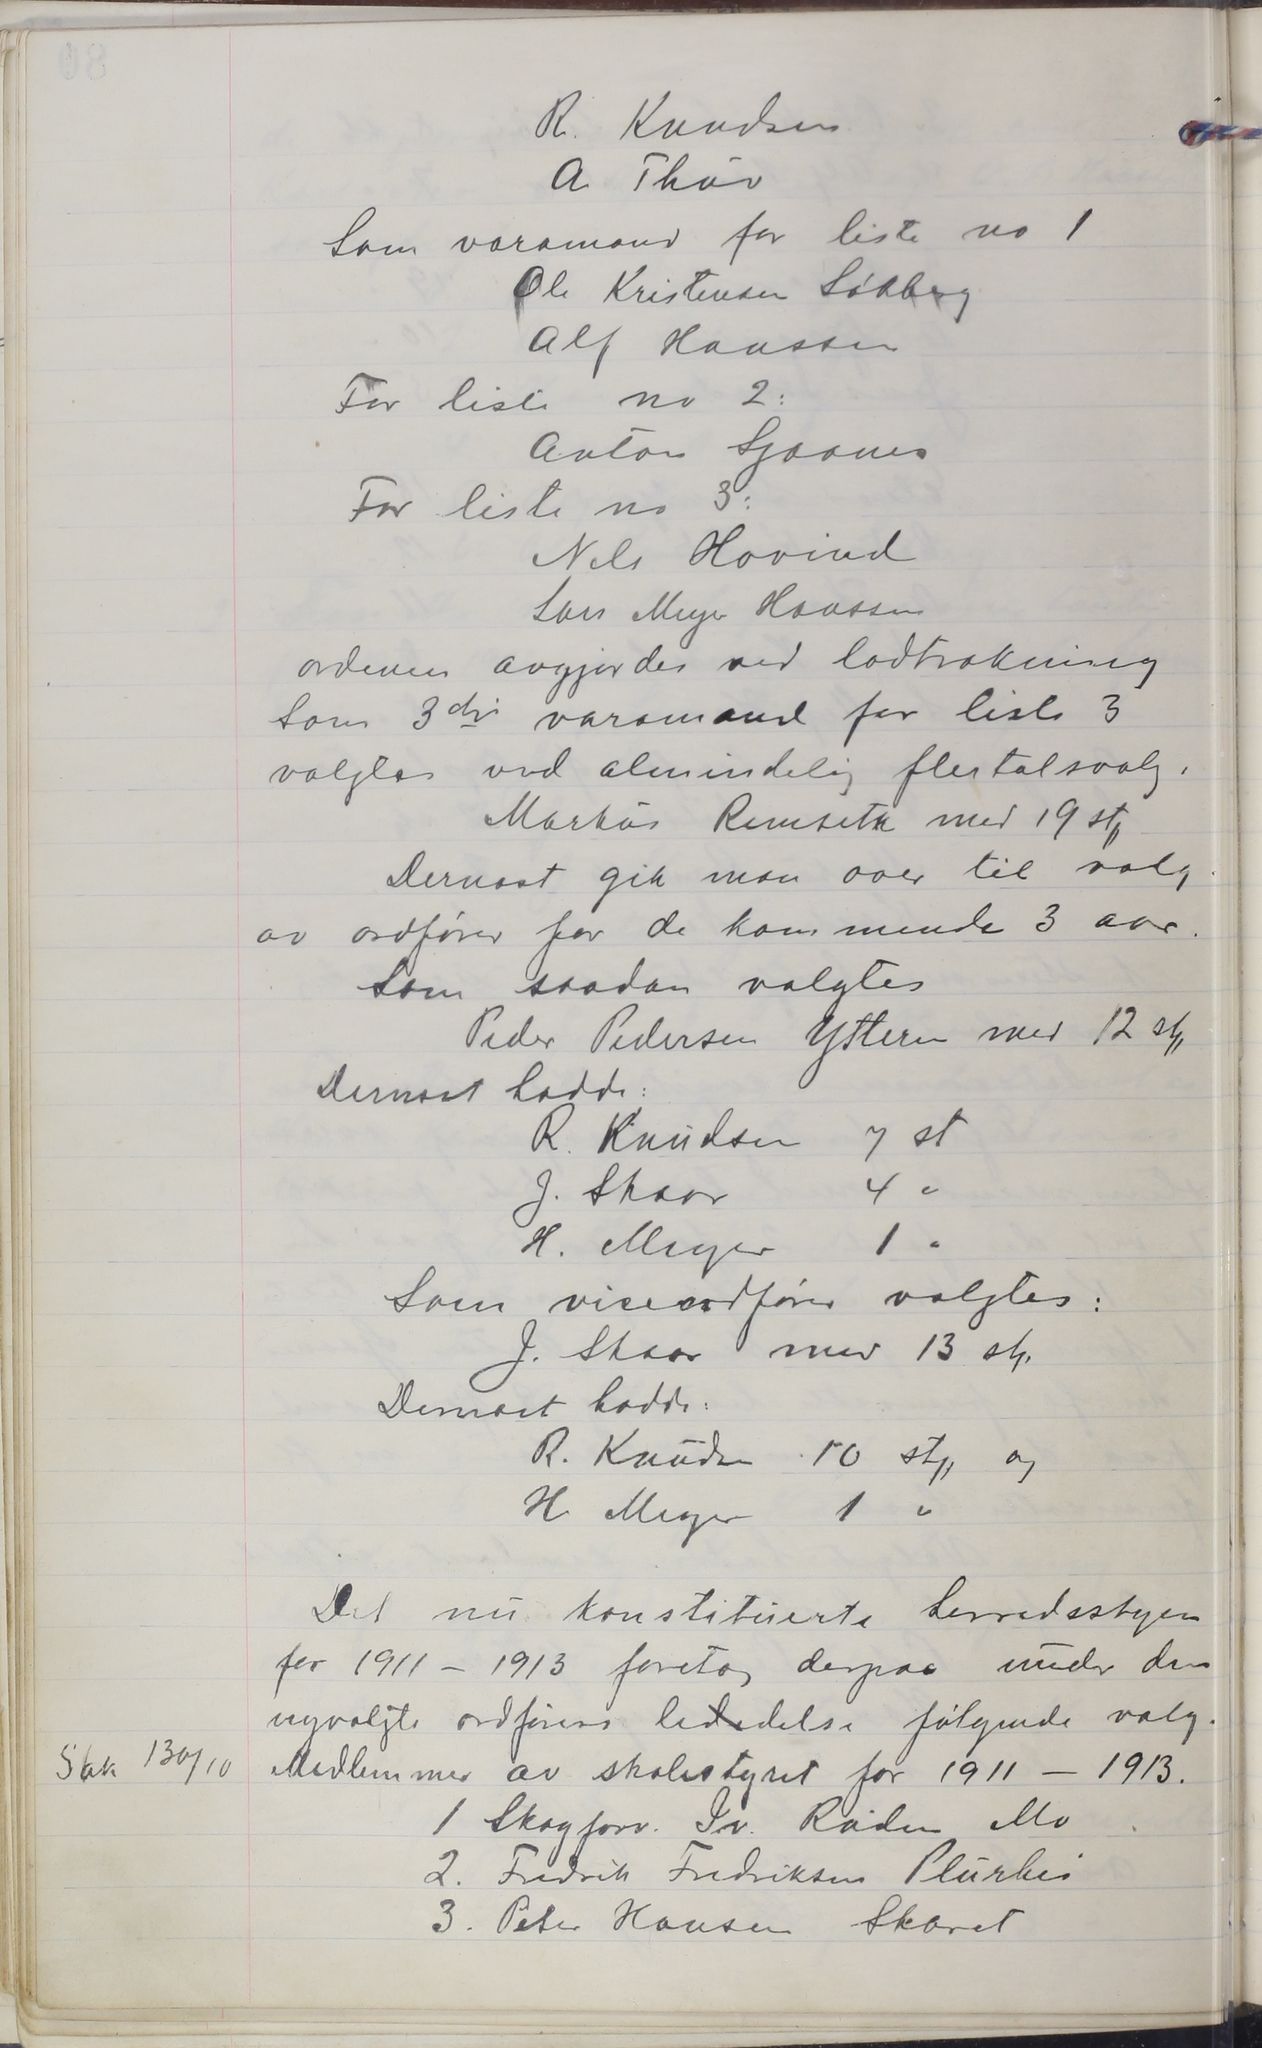 R. Knudsen
A. Thuv
Som varamænd for liste no 1
Ole Kristensen Såkberg
Alf Hanssen
For liste no 2:
Anton Sjaanes
For liste no 3:
Nils Hovind
Lars Meyer Hanssen
ordenen avgjordes ved lodtrækning
Som 3dje varamand for liste 3
valgtes ved almindelig flertalsvalg.
Markus Remseth med 19 st
Dernæst gik man over til valg
av ordfører for de kommende 3 aar.
Som saadan valgtes
Peder Pedersen Ytteren med 12 st
Dernæst hadde:
R. Knudsen 7 st
J. Skaar 4 "
H. Meyer 1 "
Som viseordfører valgtes:
J. Skaar med 13 st.
Dernæst hadde:
R. Knudsen 10 st og
H. Meyer 1 "
Det nu konstituerte herredsstyre
for 1911 – 1913 foretog derpaa under den
nyvalgte ordførers ledelse følgende valg.
Sak 130/10 Medlemmer av skolestyret for 1911 – 1913.
1 Skogforv. Iv. Ruden Mo
2. Fredrik Fredriksen Plurhei
3. Peter Hansen Skaret